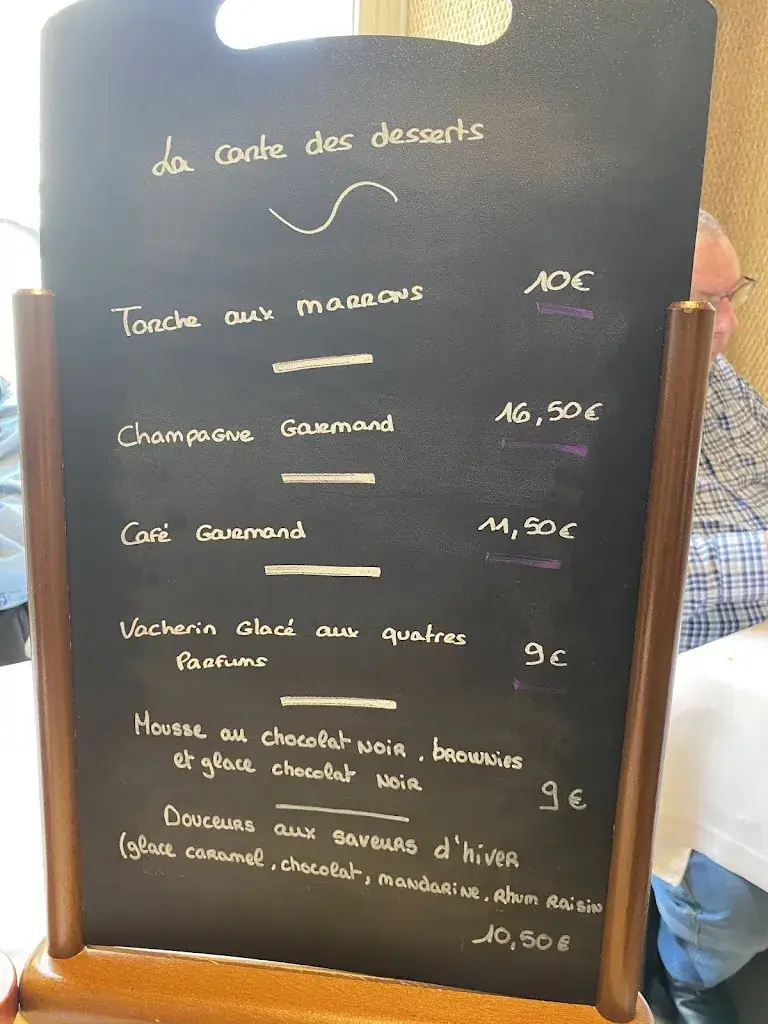 La carte des desserts
Torche aux marrons 10€
Champagne Gourmand 16,50€
Café Gourmand 11,50€
Vacherin Glacé aux quatres
Parfums 9€
Mousse au chocolat noir, brownies
et glace chocolat noir
9€
Douceurs aux saveurs d'hiver
(glace caramel, chocolat, mandarine, Rhum Raisin
10,50€